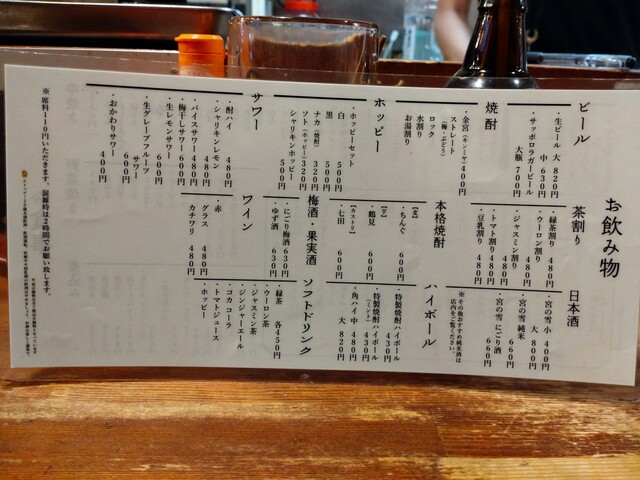 お飲み物
ビール
・生ビール 大 820円
中 630円
・サッポロラガービール
大瓶 700円
焼酎
・金宮(キンミヤ) 400円
ストレート
(梅・ぶどう)
ロック
水割り
お湯割り
ホッピー
・ホッピーセット
白 500円
黒 500円
ナカ(焼酎) 320円
ソト(ホッピー) 320円
シャリキンホッピー
500円
サワー
・酎ハイ 480円
・シャリキンレモン
480円
・バイスサワー 480円
・梅干サワー 600円
・生レモンサワー
600円
・生グレープフルーツ
サワー
600円
・おかわりサワー
400円
茶割り
・緑茶割り 480円
・ウーロン割り
480円
・ジャスミン割り
480円
・トマト割り 480円
・豆乳割り 480円
本格焼酎
【麦】
・ちんぐ 600円
【芋】
・鶴見 600円
【カストリ】
・七田 600円
梅酒・果実酒
・にごり梅酒 630円
・ゆず酒 630円
ワイン
・赤
グラス 480円
カチワリ 480円
日本酒
・宮の雪 小 400円
大 800円
・宮の雪 純米
660円
・宮の雪 にごり酒
660円
※その他おすすめ純米酒は
店内をご覧ください。
ハイボール
・特製焼酎ハイボール
430円
・特製焼酎ハイボール
430円
・角ハイ 中 480円
大 820円
ソフトドリンク
各450円
・緑茶
・ウーロン茶
・ジャスミン茶
・ジンジャーエール
・コカ コーラ
・トマトジュース
・ホッピー
※ 席料110円いただきます。混雑時は2時間でお願い致します。